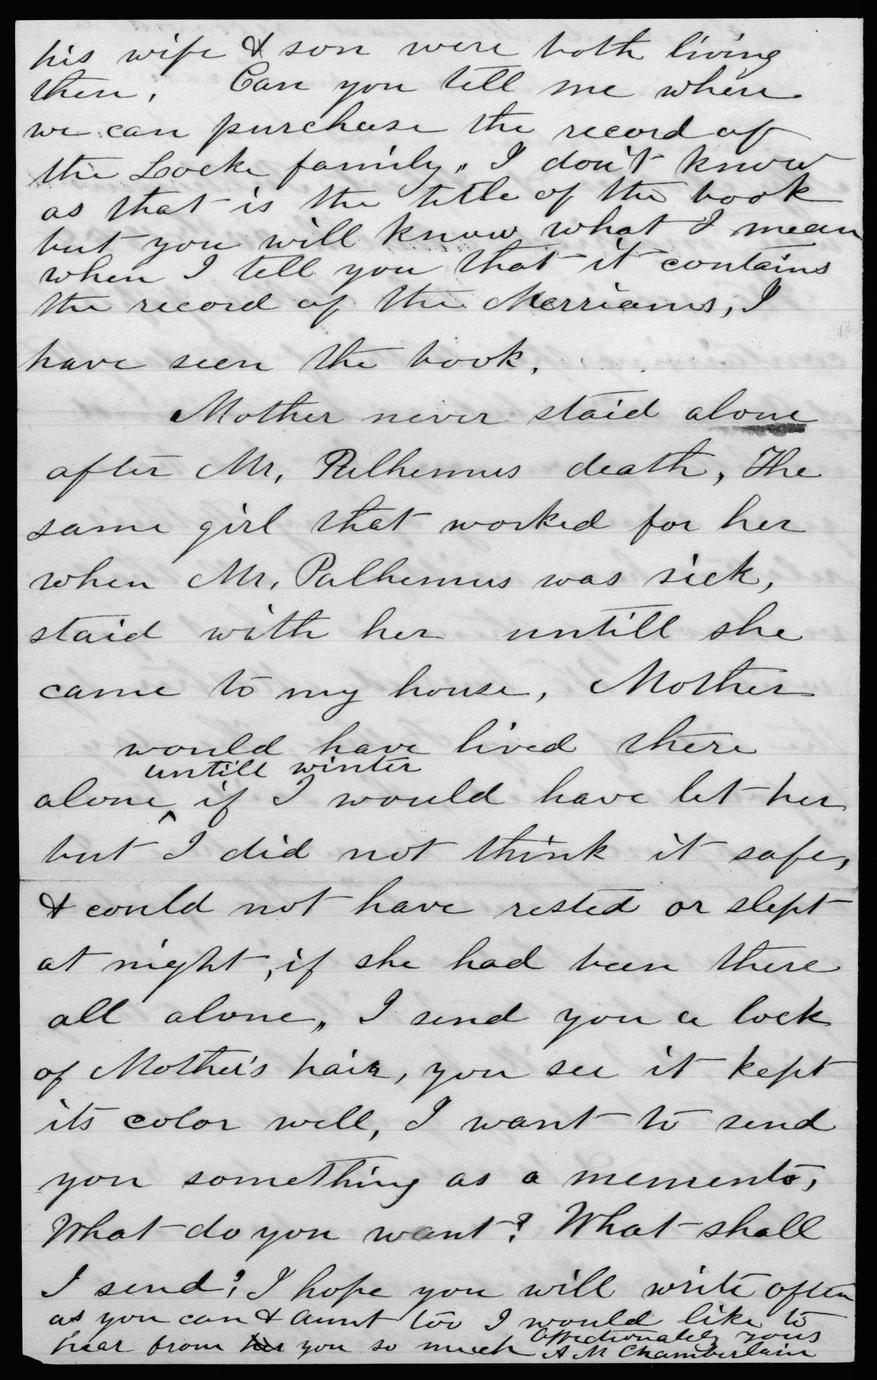 his wife & son were both living
then. Can you tell me where
we can purchase the record of
the Locke family, I don't know
as that is the title of the book
but you will know what I mean
when I tell you that it contains
the record of the Merriams, I
have seen the book.
Mother never staid alone
after Mr. Pulhemus death, The
same girl that worked for her
when Mr. Palhemus was sick,
staid with her untill she
came to my house, Mother
would have lived there
untill winter
alone ^ if I would have let her
but I did not think it safe,
& could not have rested or slept
at night, if she had been there
all alone, I send you a lock
of Mother's hair, you see it kept
its color well, I want to send
you something as a memento,
What do you want? What shall
I send? I hope you will write often
as you can & Aunt too I would like to
hear from you so much Affectionately yours
A M Chamberlain